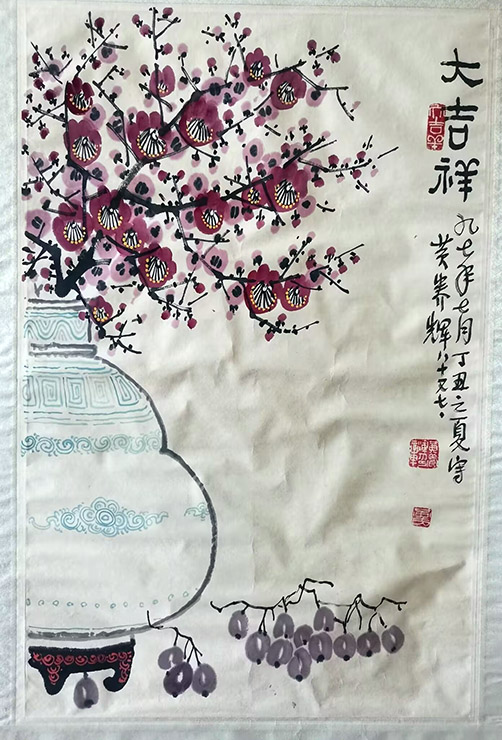 大吉祥
大吉羊
九七年七月丁丑之夏写
黄养辉八十又七